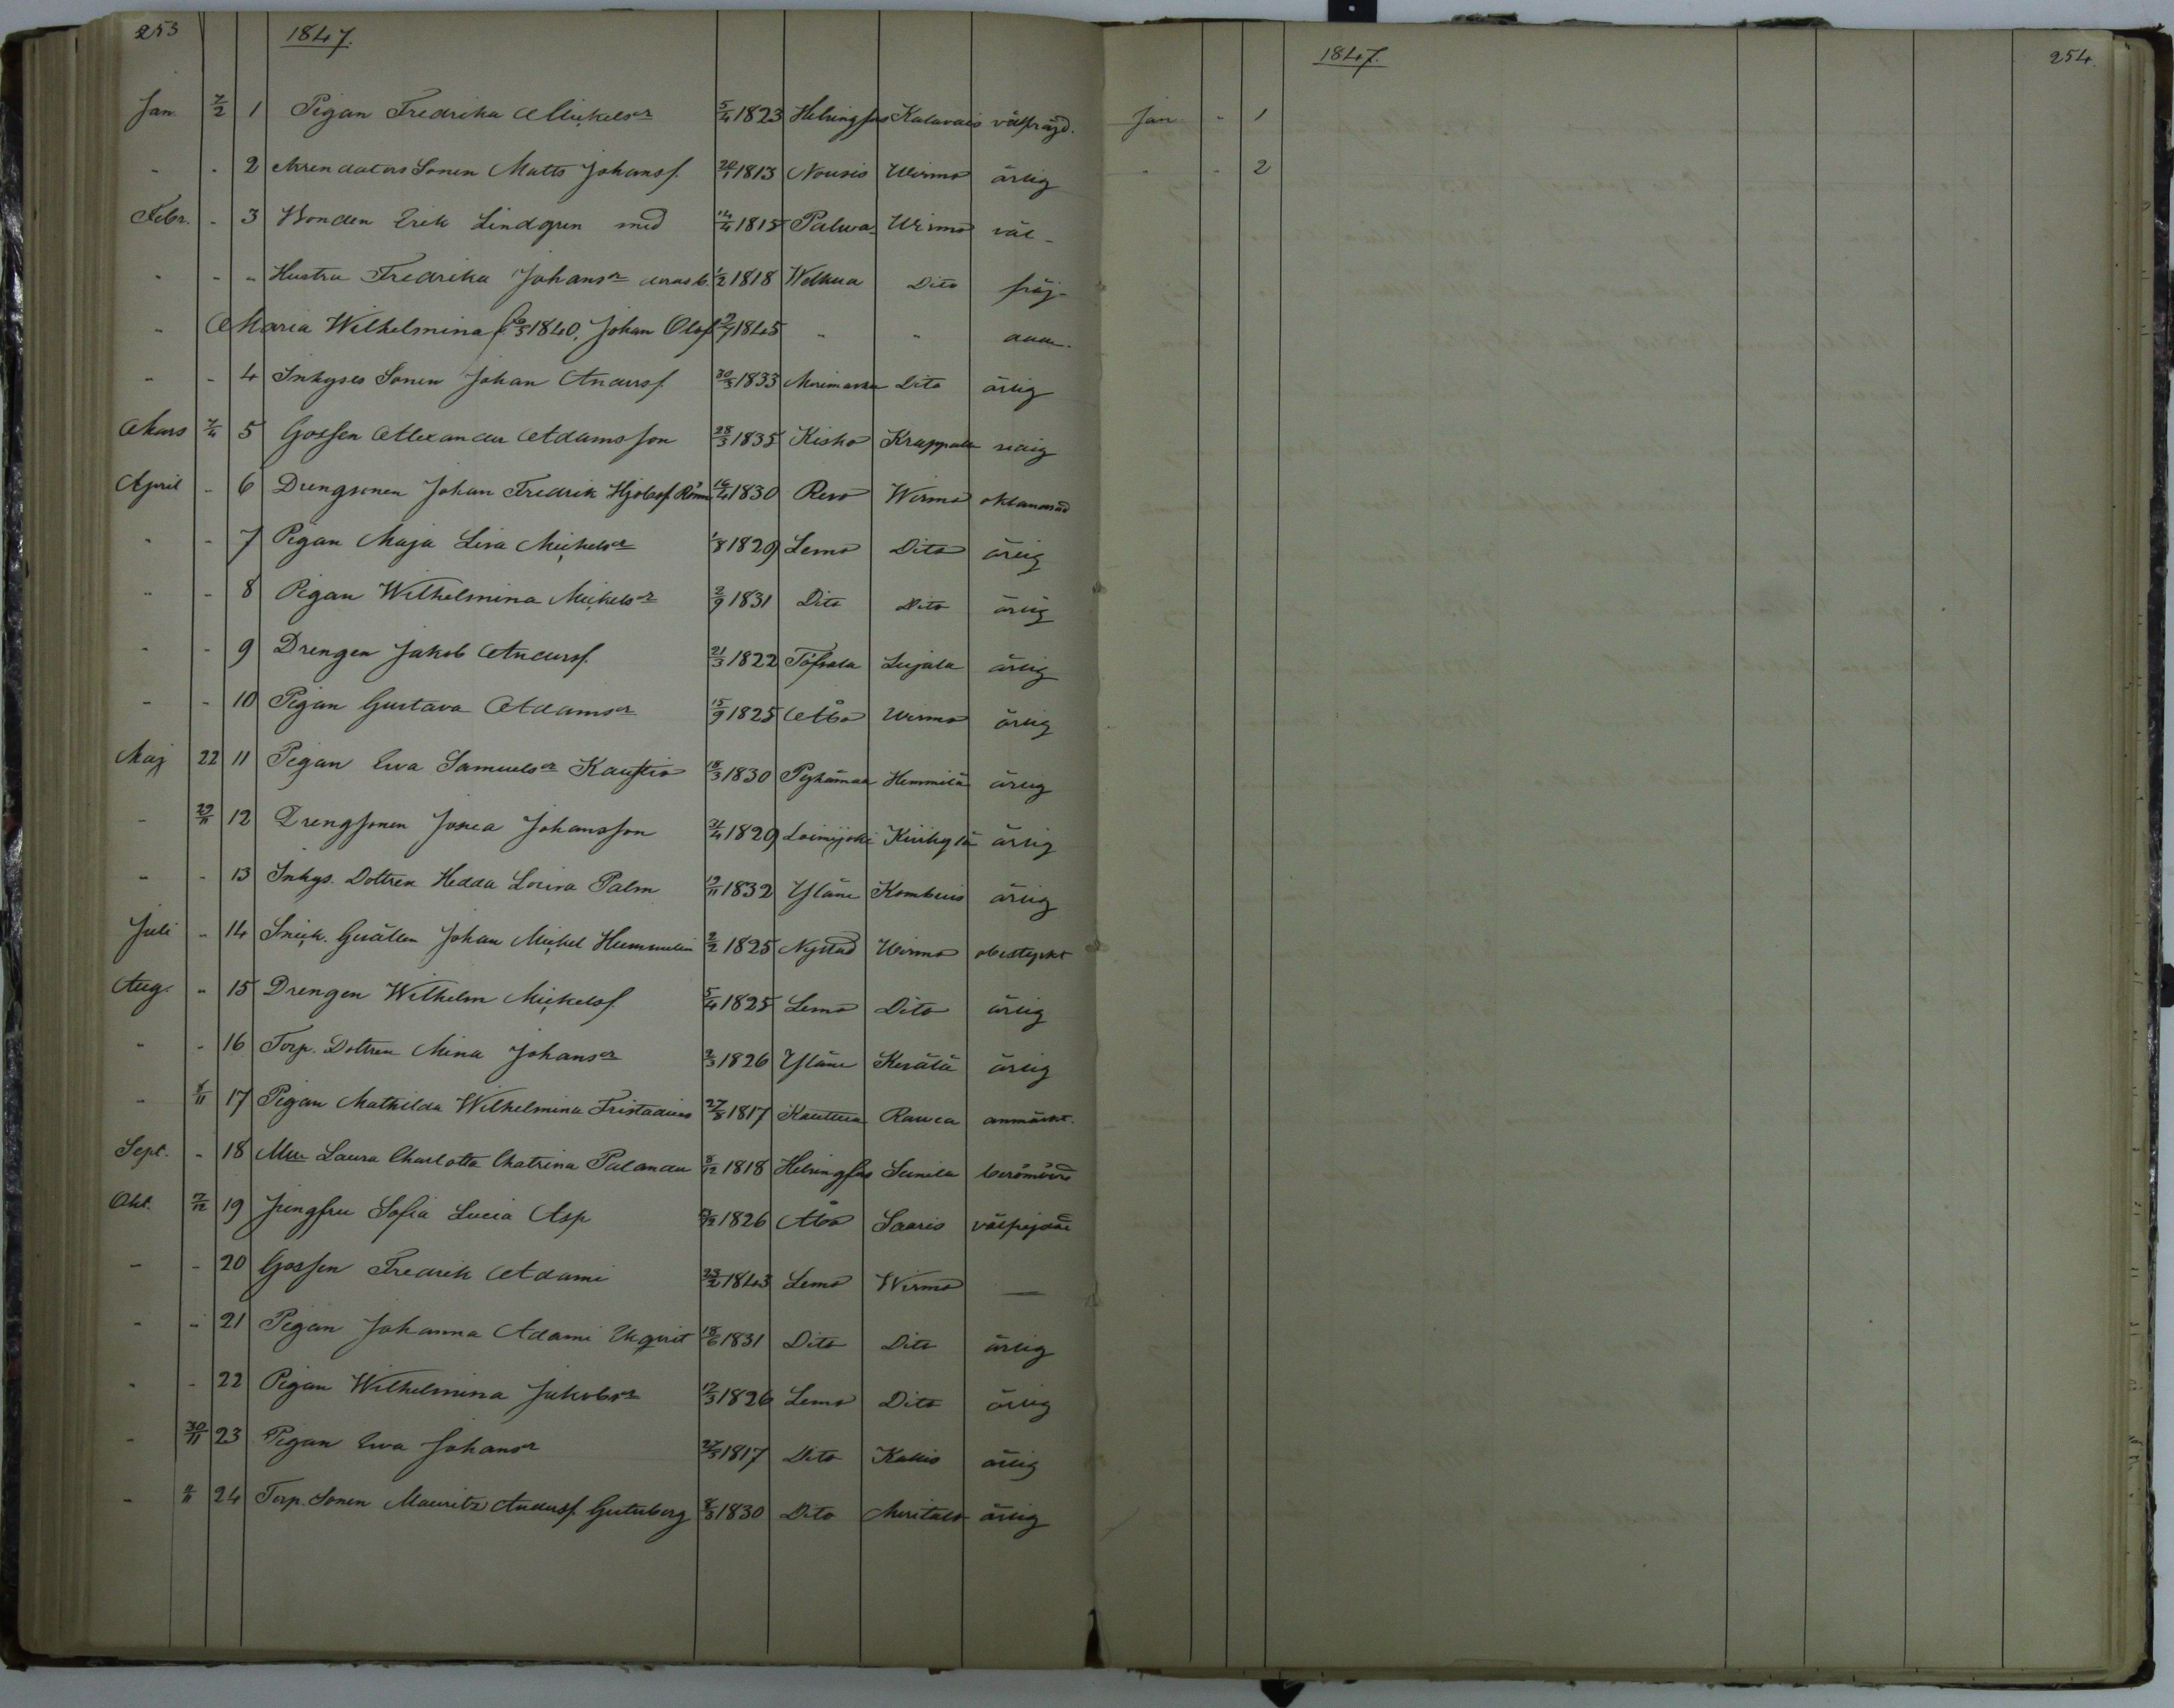 253 1847.
Jan. 7/2 1 Pigan Fredrika Mickelsr 5/4 1823 Helsingfors Kalavais välfräjd.
- - 2 Arrendators Sonen Matts Johansf. 20/1 1813 Nousis Wirmo ärlig
Febr. - 3 Bonden Erik Lindgren med 14/4 1815 Palwa Wirmo väl-
- - - Hustru Fredrika Johansr 1/2 1818 Welkua Dito fräj-
- Maria Wilhelmina f. 1840, Johan Olof 1845 - -
- - 4 Inhyses Sonen Johan Andersf. 30/3 1833 Merimasku Dito ärlig
Mars 7/4 5 Gossen Alexander Adamsson 28/3 1835 Kisko Krappala
April - 6 Drengsonen Johan Fredrik 16/4 1830 Reso Wirmo oklandrad
- - 7 Pigan Maja Lisa Mickelsr 1/8 1829 Lemo Dito ärlig
- - 8 Pigan Wilhelmina Mickelsr 2/9 1831 Dito Dito ärlig
- - 9 Drengen Jakob Andersf. 21/3 1822 Töfsala Lujala ärlig
- - 10 Pigan Gustava Adamsr 15/9 1825 Åbo Wirmo ärlig
Maj 22 11 Pigan Ewa Samuelsr 18/3 1830 Pyhämaa Hemmilä ärlig
- 29/11 12 Drengsonen Josua Johansson 1829 Loimijoki Kiikylä ärlig
- - 13 Inhys. Dottren Hedda Lovisa Palm 19/11 1832 Yläne Kombuis ärlig
Juli - 14 Snick. Gesällen Johan Mickel Hummelin 2/2 1825 Nystad Wirmo obestyrkt
Aug. - 15 Drengen Wilhelm Mickelsf. 5/4 1825 Lemo Dito ärlig
- - 16 Torp. Dottren Mina Johansr 2/3 1826 Yläne Kerälä ärlig
- 8/11 17 Pigan Mathilda Wilhelmina Fristadius 27/8 1817 Kauttua Rauca anmärkt.
Sept. - 18 Laura Charlotta Chatrina Palander 8/12 1818 Helsingfors Sunila berömvärd
Okt. 7/12 19 Jungfru Sofia Lucia Asp 1826 Åbo Saaris välfrejdad
- - 20 Gossen Fredrik Adami 23/2 1843 Lemo Wirmo —
- - 21 Pigan Johanna Adami 18/6 1831 Dito Dito ärlig
- - 22 Pigan Wilhelmina Jakobsr 17/3 1826 Lemo Dito ärlig
- 30/11 23 Pigan Ewa Johansr 1817 Dito Kallis ärlig
- 24 Torp. Sonen Mauritz Andersf. Gutuberg 8/3 1830 Dito Meritalo ärlig
1847. 254.
Jan - 1
- - 2